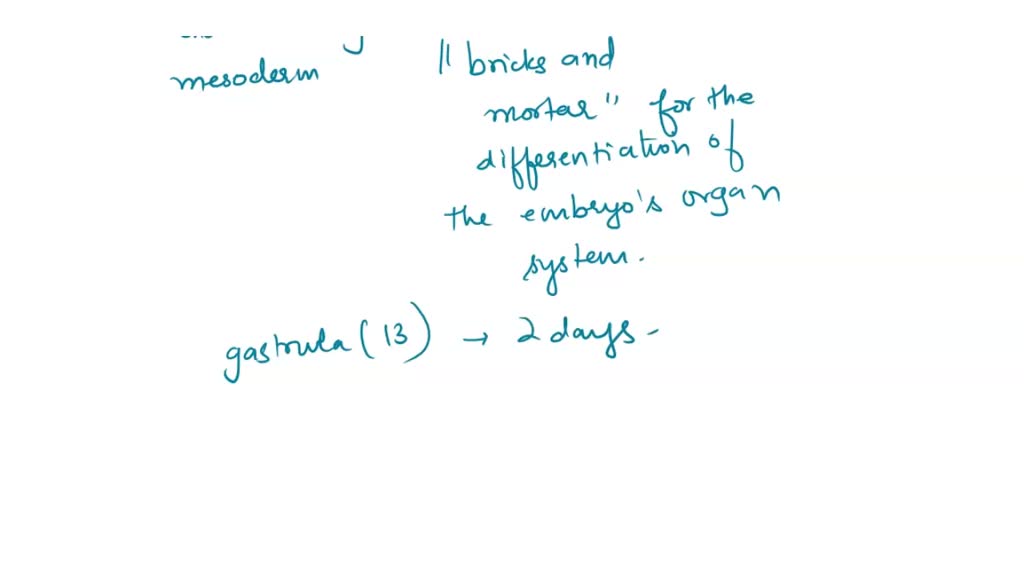 mesoderm
" bricks and
mortar" for the
differentiation of
the embryo's organ
system.
gastrula (13) → 2 days -